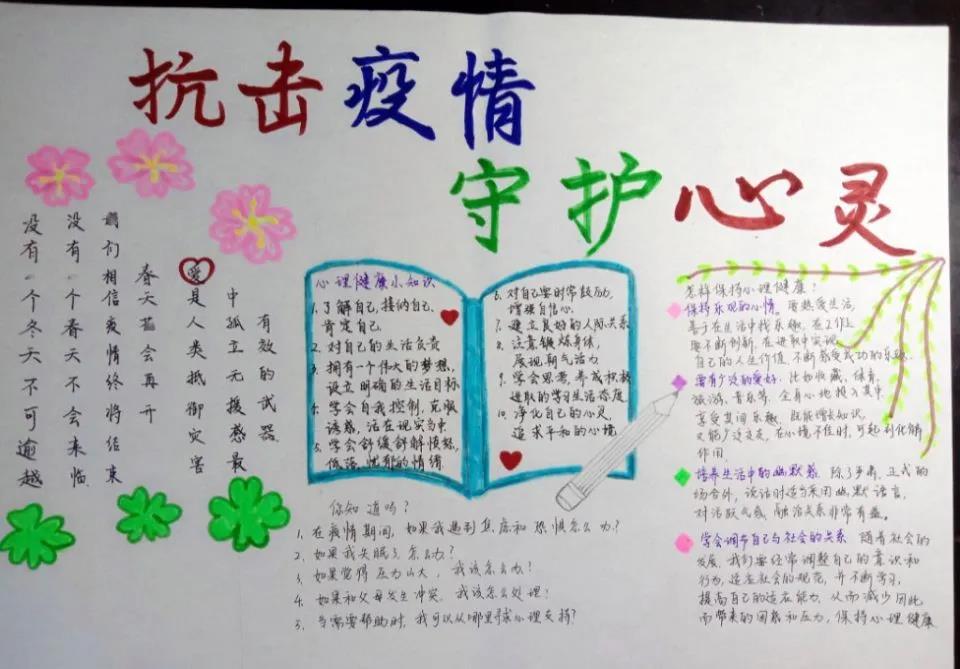 抗击疫情
守护心灵
没有一个冬天不可逾越
没有一个春天不会来临
们相信疫情终将结束
春天花会再开
爱是人类抵御灾害
中孤立无援感最
有效的试器
心理健康小知识
1.了解自己,接纳自己,
肯定自己
2.对自己的生活负责
3.拥有一个伟大的梦想,
设立明确的生活目标
4.学会自我控制,克服
诱惑,活在现实当中
5.学会舒缓舒解愤怒,
低落、忧郁的情绪
6.对自己要时常鼓励,
增强自信心
7.建立良好的人际关系
8.注意锻炼身体,
展现期气活力
9.学会思考,养成积极
进取的学习生活态度
10.净化自己的心灵,
追求平和的心境
你知道吗?
1.在疫情期间,如果我遇到焦虑和恐惧怎么办?
2.如果我失眠了怎么办?
3.如果觉得压力山大,我该怎么办!
4.如果和父母发生冲突,我该怎么处理!
5.当需要帮助时,我可以从哪里寻求心理支持?
怎样保持心理健康!
保持乐观的心情。要热爱生活,
善于在生活中找乐趣,在工作上
要不断创新,在进取中实现
自己的人生价值,不断感受成功的乐趣
要有广泛的爱好。比如收藏,体育,
旅游,音乐等,全身心地投入其中,
享受其间乐趣,既能增长知识,
又能广泛交友,在心境不佳时,可起到化解
作用.
培养生活中的幽默感.除了严肃,正式的
场合外,谈话时适当采用幽默语言,
对活跃气氛,融洽关系非常有益。
学会调节自己与社会的关系.随着社会的
发展,我们要经常调整自己的意识和
行为,适应社会的规范,并不断学习,
提高自己的适应能力,从而减少因此
而带来的困惑和压力,保持心理健康